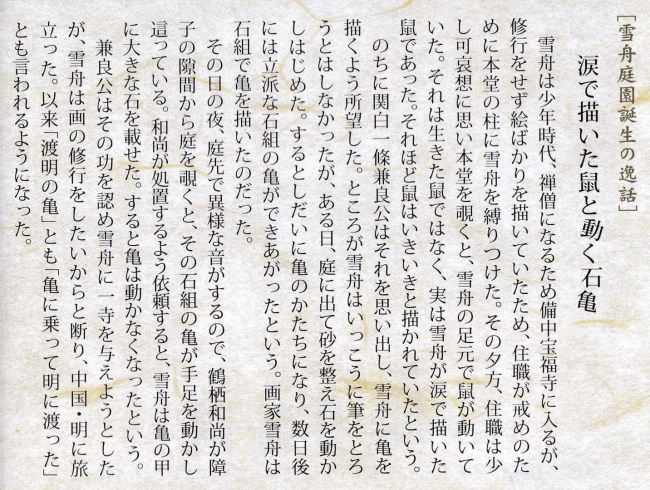 ［雪舟庭園誕生の逸話］
涙で描いた鼠と動く石亀
雪舟は少年時代、禅僧になるため備中宝福寺に入るが、
修行をせず絵ばかりを描いていたため、住職が戒めのた
めに本堂の柱に雪舟を縛りつけた。その夕方、住職は少
し可哀想に思い本堂を覗くと、雪舟の足元で鼠が動いて
いた。それは生きた鼠ではなく、実は雪舟が涙で描いた
鼠であった。それほど鼠はいきいきと描かれていたという。
のちに関白一條兼良公はそれを思い出し、雪舟に亀を
描くよう所望した。ところが雪舟はいっこうに筆をとろ
うとはしなかったが、ある日、庭に出て砂を整え石を動か
しはじめた。するとしだいに亀のかたちになり、数日後
には立派な石組の亀ができあがったという。画家雪舟は
石組で亀を描いたのだった。
その日の夜、庭先で異様な音がするので、鶴栖和尚が障
子の隙間から庭を覗くと、その石組の亀が手足を動かし
這っている。和尚が処置するよう依頼すると、雪舟は亀の甲
に大きな石を載せた。すると亀は動かなくなったという。
兼良公はその功を認め雪舟に一寺を与えようとした
が、雪舟は画の修行をしたいからと断り、中国・明に旅
立った。以来「渡明の亀」とも「亀に乗って明に渡った」
とも言われるようになった。